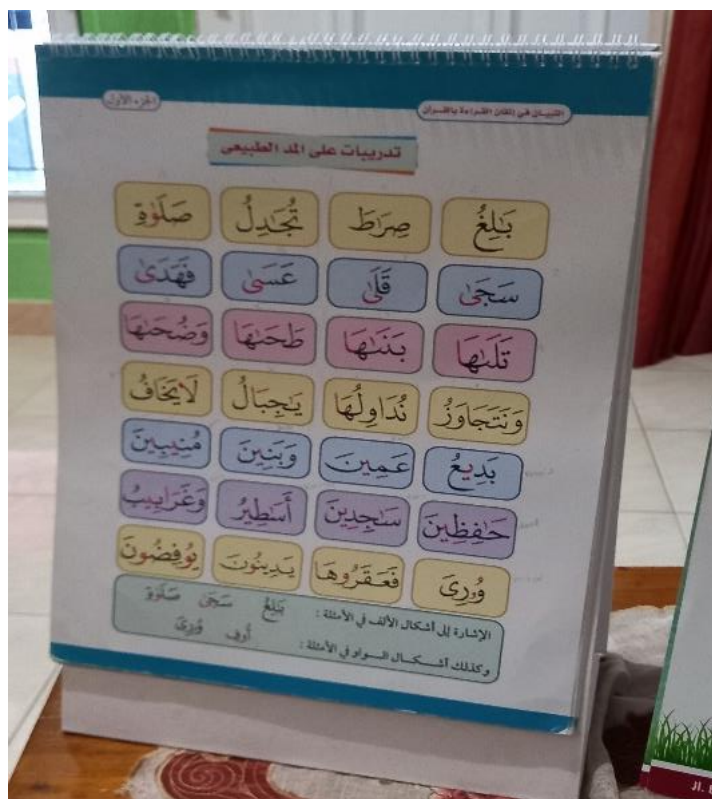 التبيان في إتقان القراءة بالقرآن الجزء الأول
تدريبات على المد الطبيعي
بَـٰلِغُ صِرَٰطَ تُجَـٰدِلُ صَلَوٰةِ
سَجَىٰ قَلَىٰ عَسَىٰ فَهَدَىٰ
تَلَىٰهَا بَنَىٰهَا طَحَىٰهَا وَضُحَىٰهَا
وَنَتَجَاوَزُ نُدَاوِلُهَا يَـٰجِبَالُ لَا يَخَافُ
بَدِيعُ عَمِينَ وَبَنِينَ مُنِيبِينَ
حَـٰفِظِينَ سَـٰجِدِينَ أَسَـٰطِيرُ وَغَرَابِيبُ
وُۥرِىَ فَعَقَرُوهَا يَدِينُونَ يُوفِضُونَ
الإشارة إلى أشكال الألف في الأمثلة : بَـٰلِغُ سَجَىٰ صَلَوٰةِ
وكذلك أشـكـال الـواو في الأمثلة : أُوفِ وُۥرِىَ